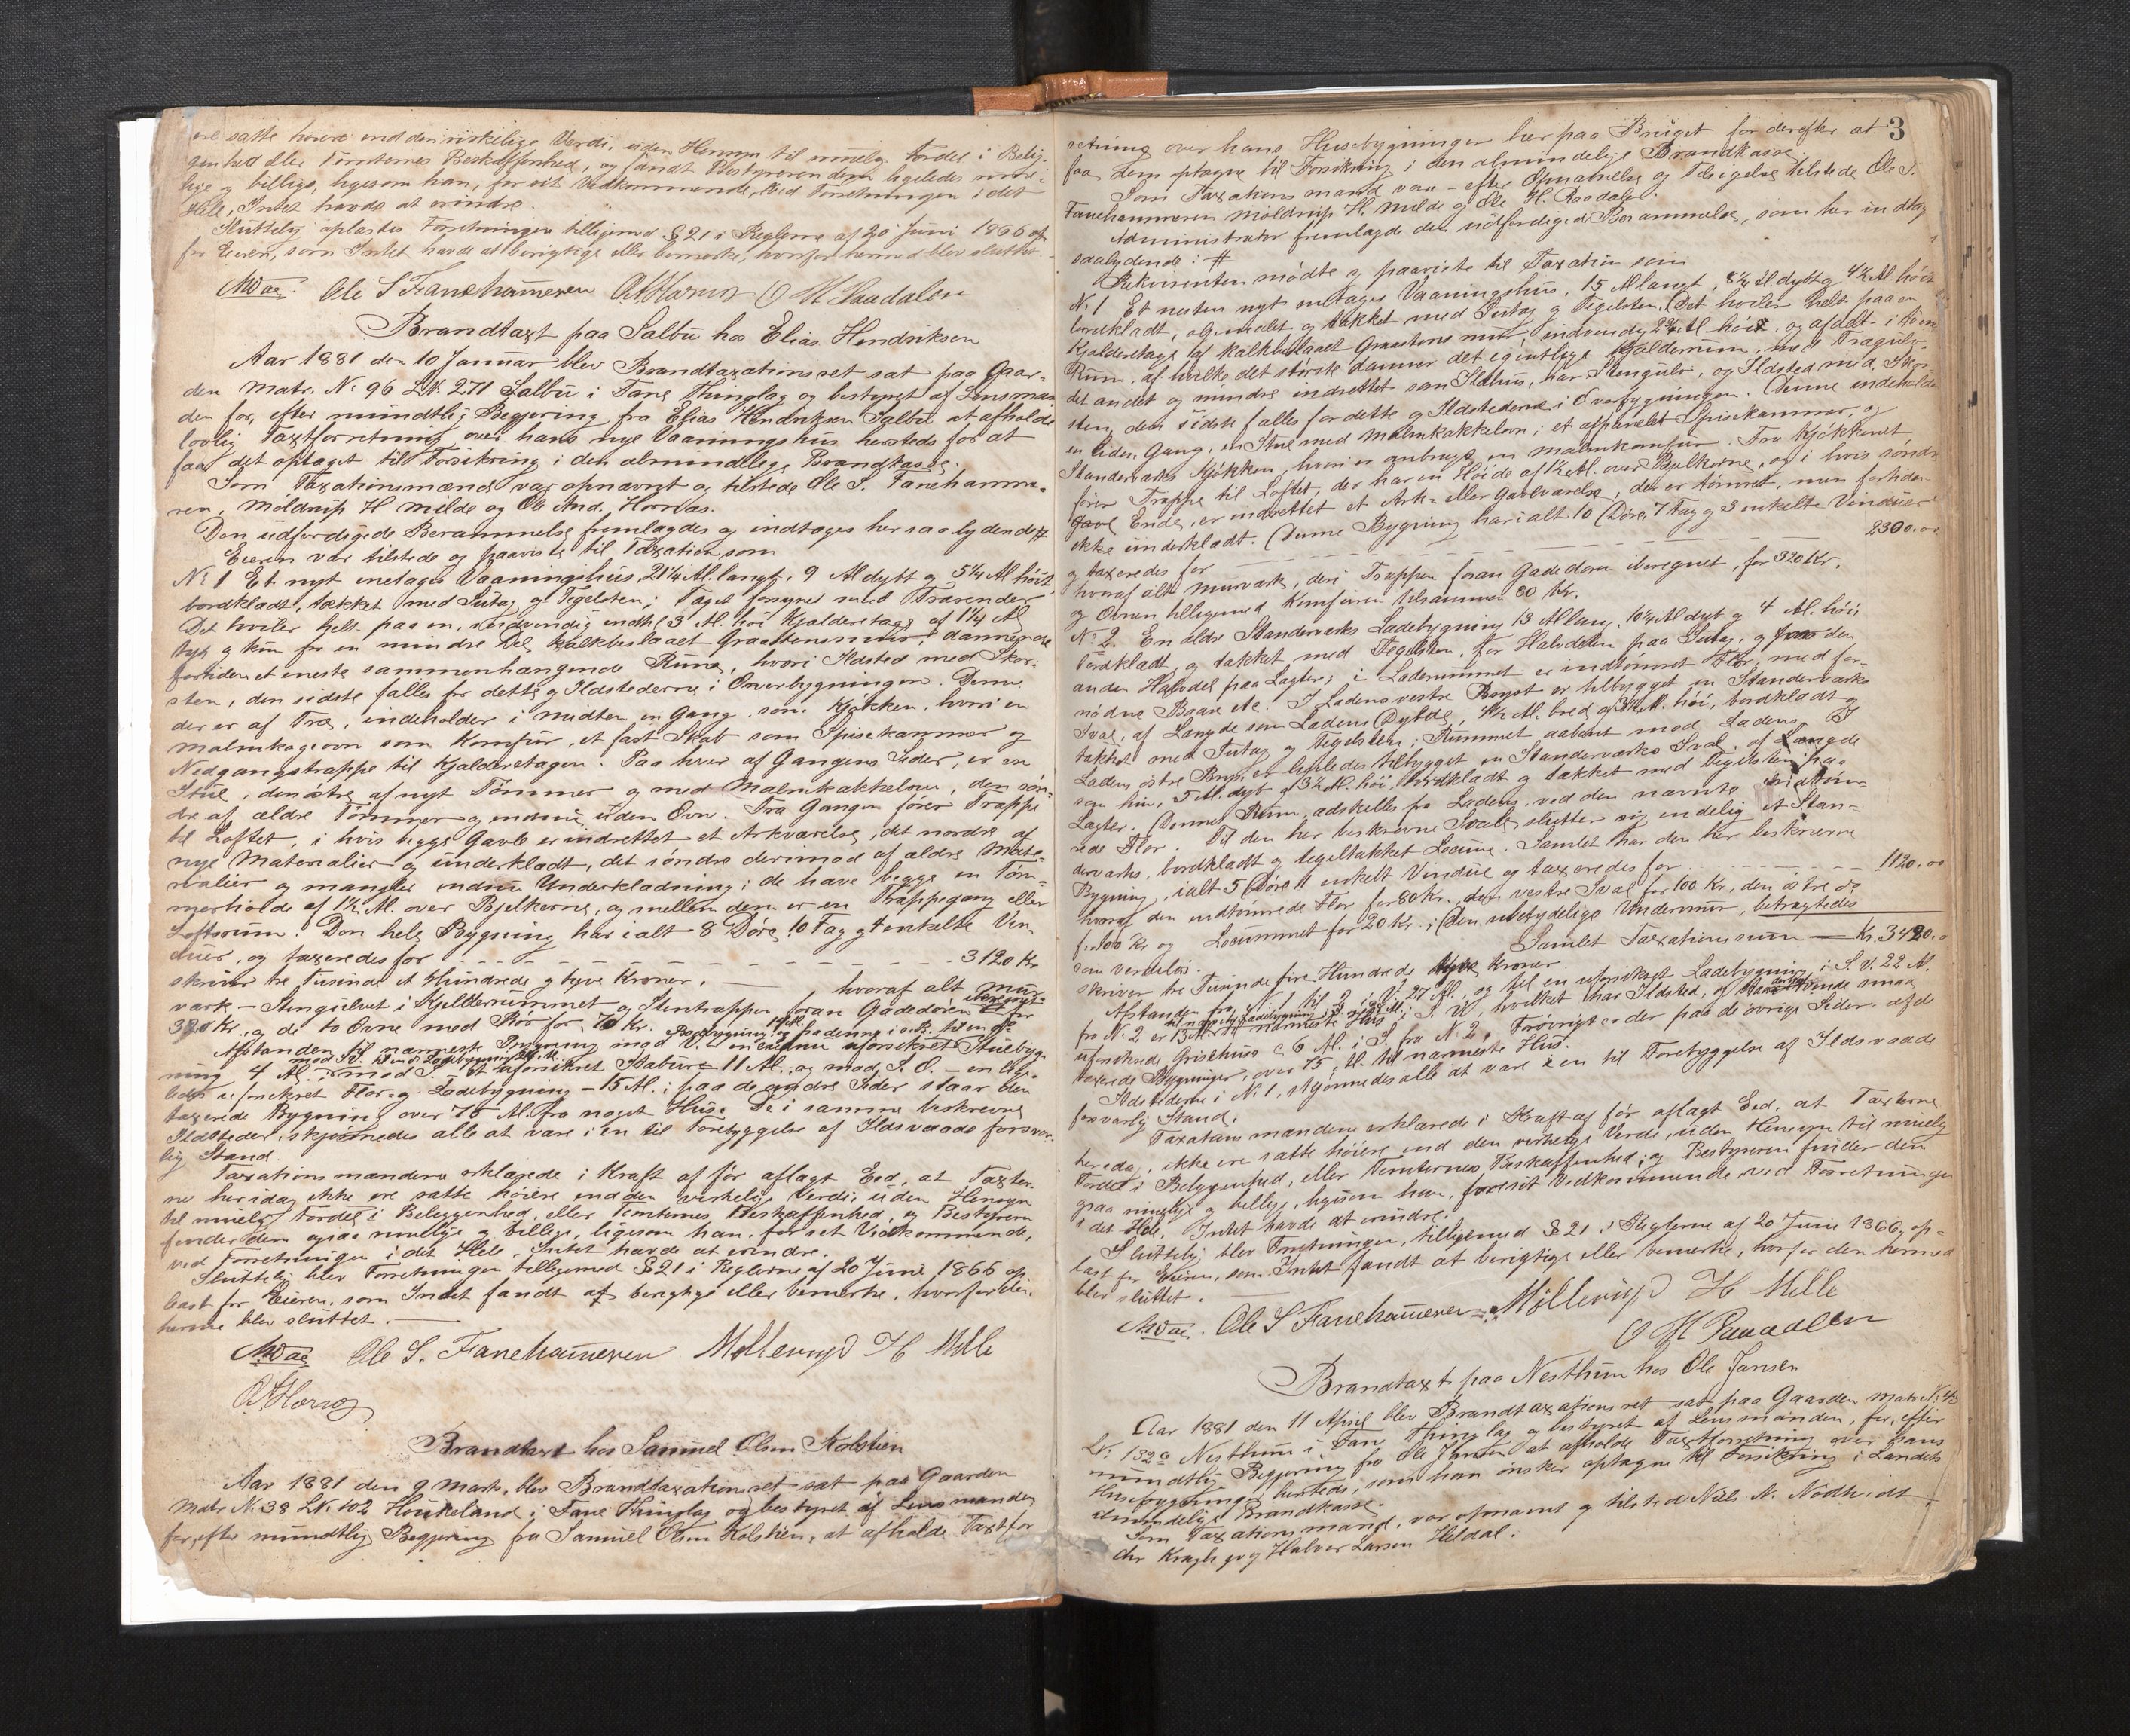 ere satte høiere end den virkelige Verdi, uden Hensyn til muelig Fordel i Belig-
genhed eller Tomternes Beskaffenhed, og fandt Bestyreren dem ligeledes mue-
lige og billige, ligesom han, for sit Vedkommende, ved Forretningen i det
Hele, Intet havde at erindre.
Sluttelig oplæstes Forretningen tilligemed § 21 i Reglerne af 20 Juni 1866
for Eieren, som Intet havde at berigtige eller bemærke, hvorfor hermed blev sluttet.
Ole S Fanehammeren
Brandtaxt paa Salbu hos Elias Hendriksen
Aar 1881 den 10 Januar blev Brandtaxationsret sat paa Gaar-
den Matr. No 96 LN. 271 Salbu i Fane Thinglag og bestyret af Lensman
den for, efter mundtlig Begjering fra Elias Hendriksen Salbu at afholde
lovlig Taxtforretning over hans nye Vaaningshus hersteds for at
faa det optaget til Forsikring i den almindelige Brandkasse.
Som Taxationsmænd var opnævnt og tilstede Ole S. Fanehamme-
ren, Moldrup H Milde og Ole And. Horvas.
Den udferdigede Berammelse fremlagdes og indtages her saalydende #
Eieren var tilstede og paaviste til Taxation som
No 1 Et nyt enetages Vaaningshus, 21 1/4 Al. langt, 9 Al dybt og 5 1/4 Al høit
bordklædt, tækket med Sutag og Tegelsten; Taget forsynet med Trærender
Det hviler helt paa en, indvendig indtil 3 Al. høi Kjelderetage af 1 1/4 Al
tyk og kun for en mindre Del kalkbeslaaet Graastensmuur, dannende
fortiden et eneste sammenhængende Rum, hvori Ildsted med Skor-
sten, den sidste fælles for dette og Ildstederne i Overbygningen. Denne
der er af Træ, indeholder i Midten en Gang som Kjøkken, hvori en
Malmkogeovn som Komfur, et fast Skab som Spisekammer og
Nedgangstrappe til Kjelderetagen. Paa hver af Gangens Sider, er en
Stue, den østre af nyt Tømmer og med Malmkakkelovn, den søn-
dre af ældre Tømmer og endnu uden Ovn. Fra Gangen fører Trappe
til Loftet, i hvis begge Gavle er indrettet et Arkværelse, det nordre af
nye Materialier og underklædt, det søndre derimod af ældre Mate-
rialier og mangler endnu Underklædning; de have begge en Tøm-
merhøide af 1 1/2 Al. over Bjelkerne, og mellem dem er en Trappegang eller
Loftsrum. Den hele Bygning har ialt 8 Døre, 10 Fag og 4 enkelte Vin-
duer, og taxeredes for - - - - - - - - - 3120 Kr
skriver tre Tusinde et Hundrede og tyve Kroner, — hvoraf alt Mur-
værk – Stengulvet i Kjelderrummet og Stentrappen foran Gadedøren iberegnet – for
320 Kr., og de to Ovne med Rør for 70 Kr.
Afstanden til nærmeste Bygning mod V. en endnu uforsikret Stuebyg-
ning 4 Al., mod S. et uforsikret Stabur – 11 Al., og mod S. O. – en lige-
ledes uforsikret Flor og Ladebygning – 15 Al.; paa de andre Sider staar den
taxerede Bygning over 75 Al. fra noget Hus. De i samme beskrevne
Ildsteder, skjønnedes alle at være i en til Forebyggelse af Ildsvaade forsvar-
lig Stand.
Taxationsmændene erklærede i Kraft af før aflagt Eed, at Taxter-
ne her idag ikke ere satte høiere end den virkelige Verdi, uden Hensyn
til muelig Fordel i Beliggenhed, eller Tomternes Beskaffenhed, og Bestyreren
finder dem ogsaa muelige og billige, ligesom han, for sit Vedkommende,
ved Forretningen i det Hele, Intet havde at erindre.
Sluttelig blev Forretningen tilligemed § 21 i Reglerne af 20 Juni 1866 op-
læst for Eieren, som Intet fandt at berigtige eller bemærke, hvorfor den
hermed blev sluttet.
Ole S. Fanehammeren Møllerup H Milde
Brandtaxt hos Samuel Olsen Kolstien
Aar 1881 den 9 Marts, blev Brandtaxationsret sat paa Gaarden
Matr No 38 LN. 102 Haukeland i Fane Thinglag og bestyret af Lensmanden
for, efter mundtlig Begjering fra Samuel Olsen Kolstien, at afholde Taxtfor
3
retning over hans Husebygninger her paa Bruget for derefter at
faa dem optagne til Forsikring i den almindelige Brandkasse.
Som Taxationsmænd vare – efter Opnævnelse og Tilsigelse tilstede Ole S.
Fanehammeren, Moldrup H. Milde og Ole H. Raadalen.
Administrator fremlagde den udferdigede Berammelse, som her indtages
saalydende: #
Rekvirenten mødte og paaviste til Taxation som
No 1 Et nesten nyt enetages Vaaningshus, 15 Al langt, 8 1/4 Al dybt og 4 1/2 Al høit
bordklædt, oljemalet og tækket med Sutag og Tegelsten. Det hviler helt paa en
Kjelderetage af kalkbeslaaet Graastens muur, indvendig 2 3/4 Al høit, og afdelt i tvende
Rum, af hvilke det største danner det egentlige Kjelderrum, med Trægulv,
det andet og mindre indrettet som Ildhus, har Stengulv, og Ildsted med Skor-
sten, den sidste fælles for dette og Ildstederne i Overbygningen. Denne indeholder
en liden Gang, en Stue med Malmkakkelovn; et afpanelet Spisekammer, og
Standerværks Kjøkken, hvori er anbragt en Malmkomfur. Fra Kjøkkenet
fører Trappe til Loftet, der har en Høide af 1 1/2 Al. over Bjelkerne, og i hvis søndre
Gavl Ende, er indrettet et Ark- eller Gavlværelse, der er tømret, men fortiden
ikke underklædt. Denne Bygning har ialt 10 Døre, 7 Fag og 3 enkelte Vinduer
og taxeredes for - - - - - - - - 2300.00
hvoraf alt Murværk, deri Trappen foran Gadedøren iberegnet, for 320 Kr.
og Ovnen tilligemed Komfuren tilsammen 80 Kr.
No 2. En ældre Standerværks Ladebygning 13 Al lang, 10 1/4 Al dyb og 4 Al. høi
bordklædt og tækket med Tegelsten, for Halvdelen paa Sutag, og for den
anden Halvdel paa Lægter; i Laderummet er indtømret Flor, med for-
nødne Baase etc. I Ladens vestre Bryst er tilbygget en Standerværks
Sval, af Længde som Ladens Dybde, 4 1/2 Al. bred og 3 Al. høi, bordklædt og
tækket med Sutag og Tegelsten; Rummet aabent mod Laden. I
Ladens østre Bryst, er ligeledes tilbygget en Standerværks Sval, af Længde
som hin, 5 Al. dyb og 3 1/2 Al. høi, bordklædt og tækket med Tegelsten paa
Lægter. Dennes Rum adskilles fra Ladens ved den nævnte indtøm-
rede Flor. Til den her beskrevne Sval, slutter sig endelig et Stan-
derværks, bordklædt og tegeltækket Locum. Samlet har den her beskrevne
Bygning, ialt 5 Døre, 1 enkelt Vindue og taxeredes for - - - - - - 1120.00
hvoraf den indtømrede Flor for 80 Kr., den vestre Sval for 100 Kr., den østre do
for 100 Kr og Locummet for 20 Kr.; (den ubetydelige Undermuur, betragtedes
som værdiløs.
Samlet Taxationssum — Kr. 3420.0
skriver tre Tusinde fire Hundrede tyve Kroner.
Ildstederne i No 1, skjønnedes alle at være i en til Forebyggelse af Ildsvaade
forsvarlig Stand.
Taxationsmændene erklærede i Kraft af før aflagt Eed, at Taxterne
her idag, ikke ere satte høiere end den virkelige Verdi, uden Hensyn til muelig
Fordel i Beliggenhed, eller Tomternes Beskaffenhed; og Bestyreren finder dem
ogsaa muelige og billige, ligesom han, for sit Vedkommende, ved Forretningen
i det Hele, Intet havde at erindre.
Sluttelig blev Forretningen, tilligemed § 21 i Reglerne af 20 Juni 1866, op-
læst for Eieren, som Intet fandt at berigtige eller bemærke, hvorfor den hermed
blev sluttet.
Ole S Fanehammeren Møllerup H Milde
O H Raadalen
Brandtaxt paa Nesthun hos Ole Jansen
Aar 1881 den 11 April blev Brandtaxationsret sat paa Gaarden Matr No 43
LN. 132a Nesthun i Fane Thinglag og bestyret af Lensmanden, for, efter
mundtlig Begjering fra Ole Jansen at afholde Taxtforretning over hans
Husebygninger hersteds, som han ønsker optagne til Forsikring i Landets
almindelige Brandkasse.
Som Taxationsmænd, var opnævnt og tilstede Niels N. Nødtvedt
Chr Kragh og Halvor Larsen Heldal.